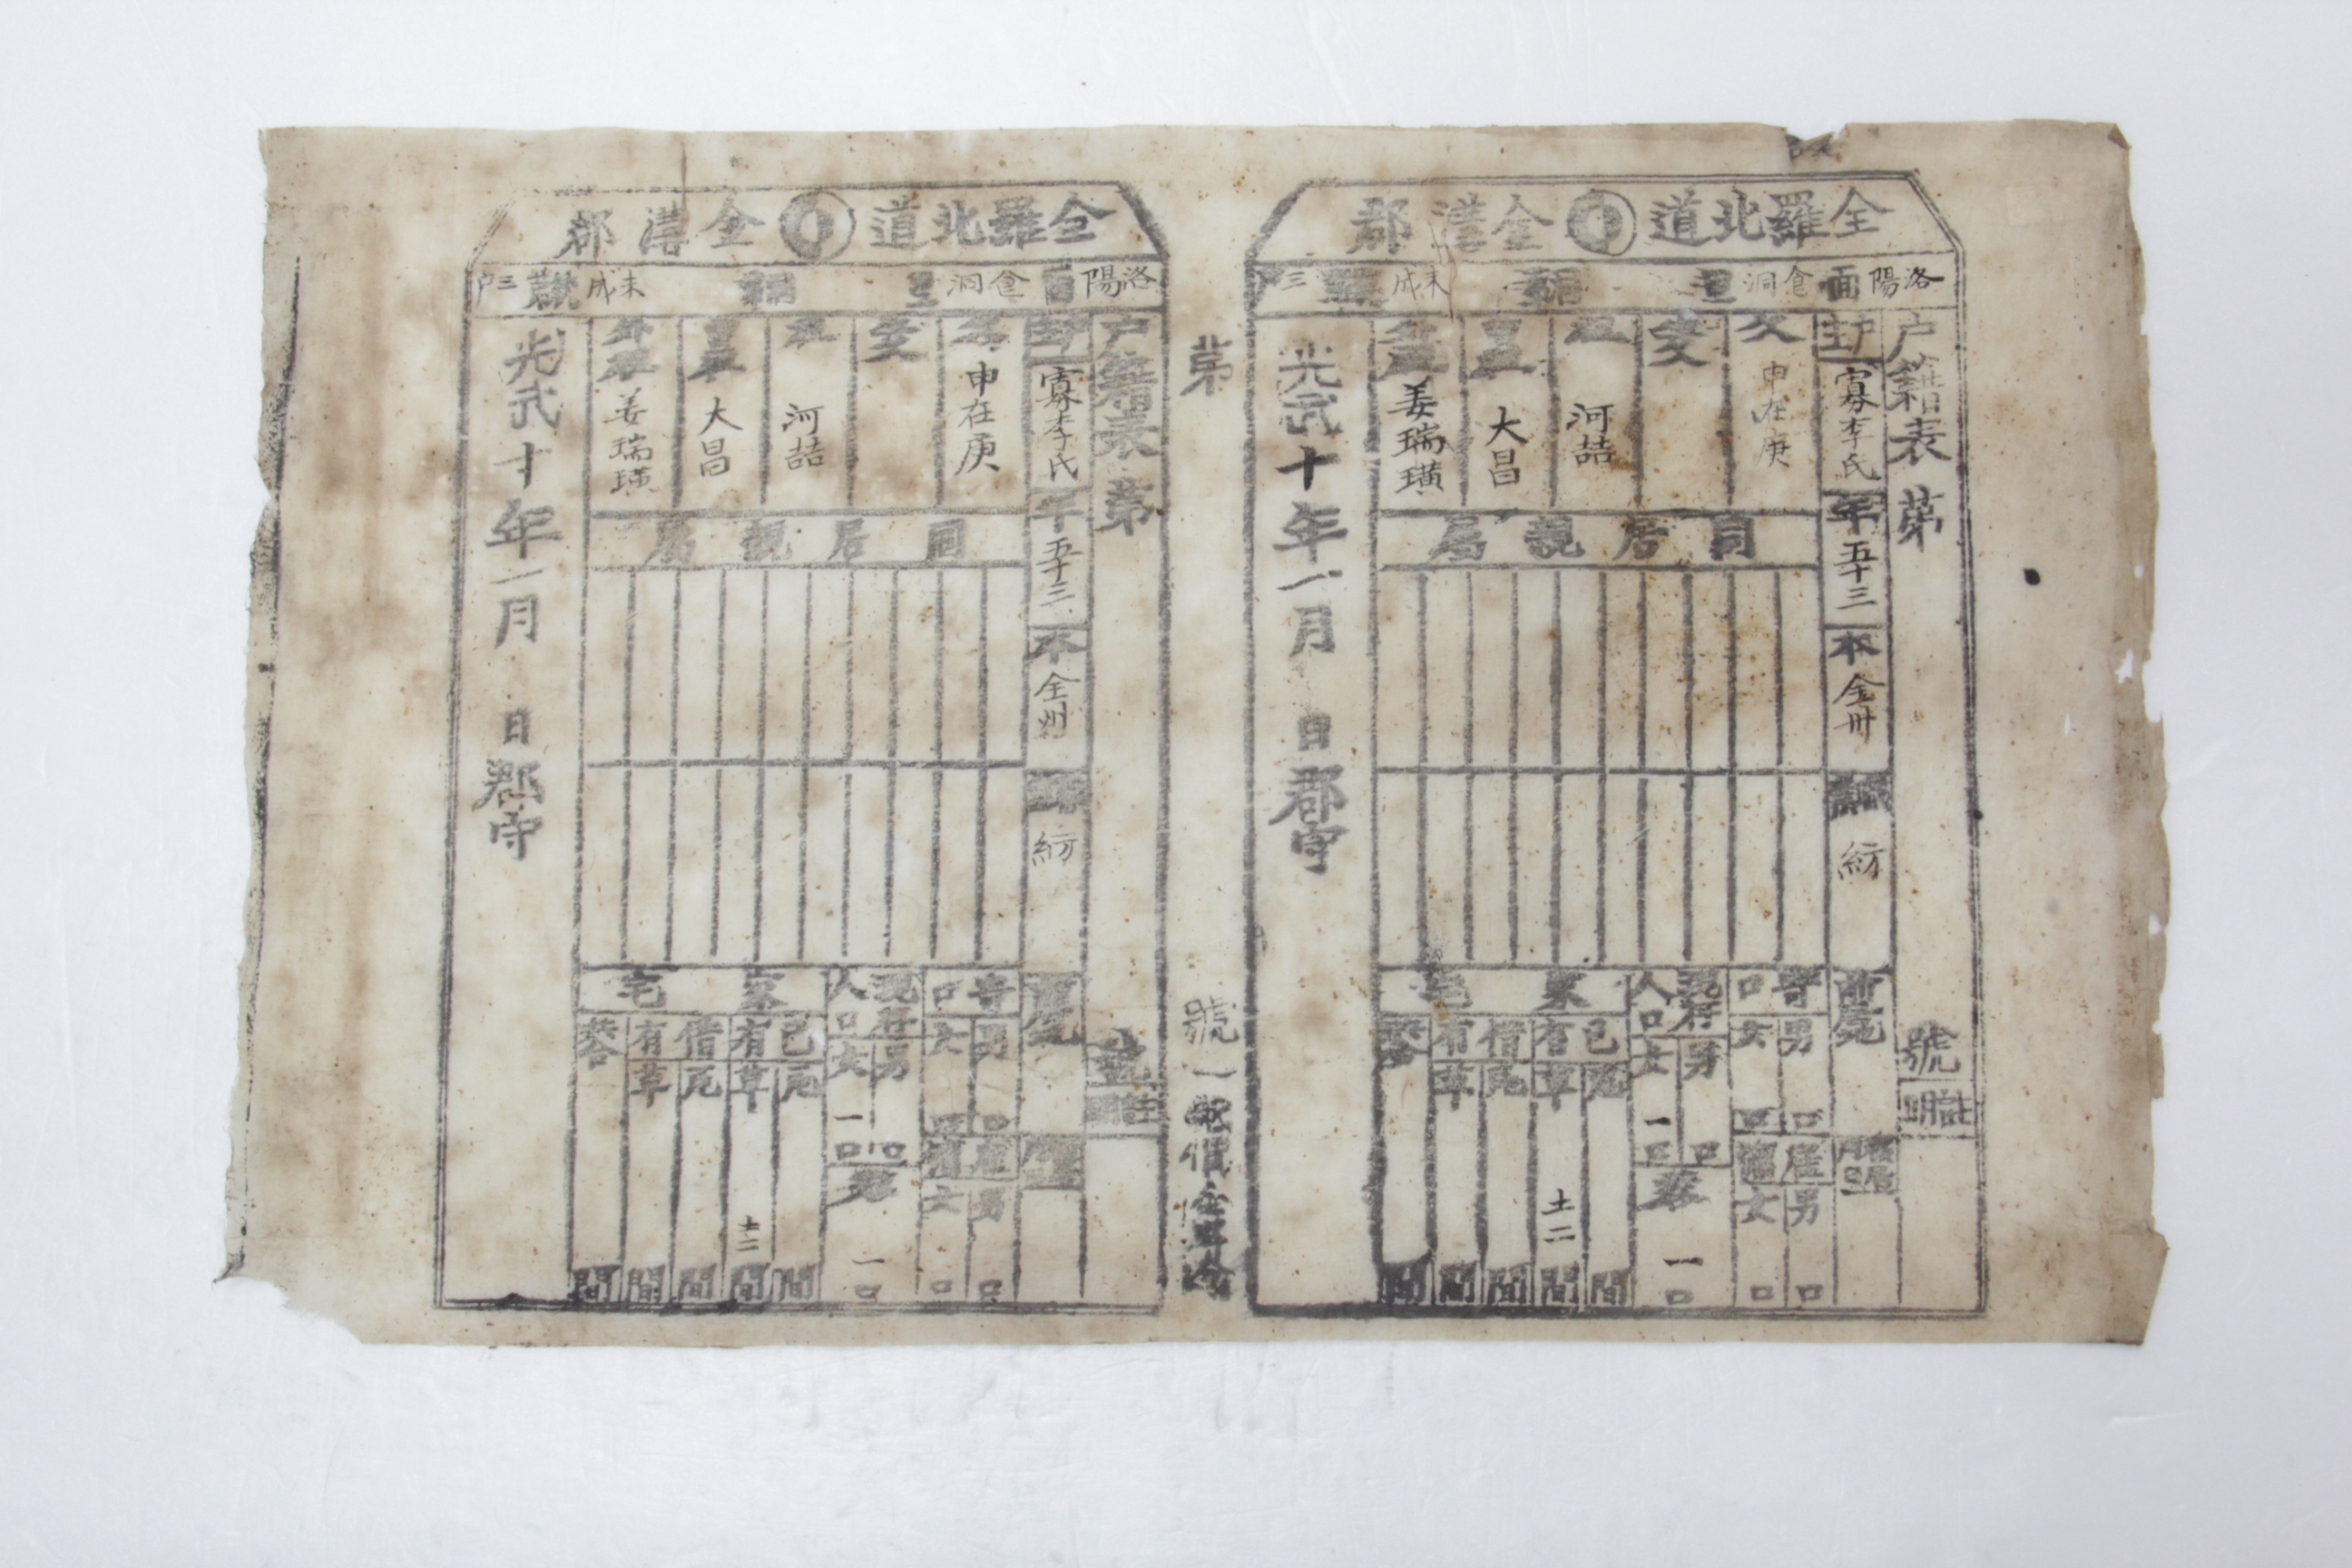 全羅北道 全溝郡
洛陽面 倉洞里 統 未成 三
戶籍表 第 號
戶主 寡李氏 年 五十三 本 全州 職業 紡
父 申在庚
生父
祖 河喆
曾祖 大昌
外祖 姜瑞璜
同居親屬
寄口 男 口 女 口
雇傭 男 口 女 口
現存人口 男 口 女 一口
共 一口
家宅
己有 瓦 間 草 土二 間
借有 瓦 間 草 間
間
光武十年一月 日 郡守
第 號 一
全羅北道 全溝郡
洛陽面 倉洞里 統 未成 號 三戶
戶籍表 第 號
戶主 寡李氏 年 五十三 本 全州 職業 紡
父 申在庚
生父
祖 河喆
曾祖 大昌
外祖 姜瑞璜
同居親屬
寄口 男 口 女 口
雇傭 男 口 女 口
現存人口 男 口 女 一口
共 一口
家宅
己有 瓦 間 草 土二 間
借有 瓦 間 草 間
間
光武十年一月 日 郡守